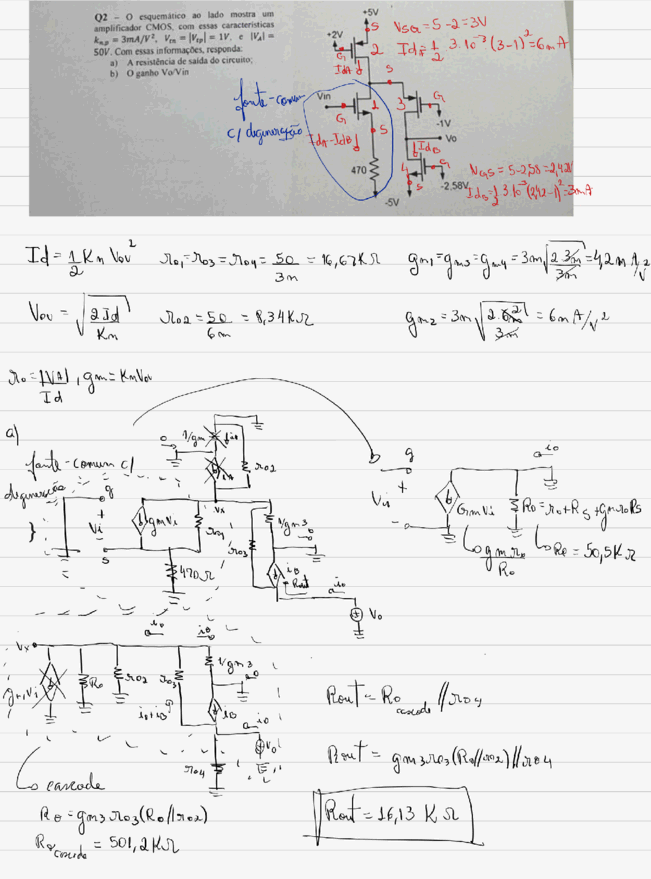 Q2 – O esquemático ao lado mostra um
amplificador CMOS, com essas características
kn,p = 3mA/V², Vtn = |Vtp| = 1V, e |VA| =
50V. Com essas informações, responda:
a) A resistência de saída do circuito;
b) O ganho Vo/Vin
+5V
+2V
S
2
G
IdA
VSG2 = 5-2 = 3V
IdA = 1/2 3.10⁻³ (3-1)² = 6mA
fonte-comum
c/ degeneração
Vin
G
1
S
IdA-IdB
470
-5V
S
3
G
-1V
Vo
IdB
4
G
S
-2.58V
VGS = 5-2,58 = 2,42V
IdB = 1/2 3.10⁻³ (2,42-1)² = 3mA
Id = 1/2 Kn Vov²
ro1 = ro3 = ro4 = 50/3m = 16,67KΩ
gm1 = gm3 = gm4 = 3m√(2 3m/3m) = 4,2m A/V²
Vov = √(2Id/Kn)
ro2 = 50/6m = 8,34KΩ
gm2 = 3m√(2.6m/3m) = 6mA/V²
ro = |VA|/Id , gm = KnVov
a)
fonte-comum c/
degeneração
}
g
+
Vi
-
s
gmVi
ro1
470Ω
1/gm
iA
ro2
Vx
1/gm3
ro3
iB
Rout
io
Vo
g
+
Vi
-
GmVi
io
Ro = ro+Rs+gmroRs
gmro/Ro
Ro = 50,5KΩ
Vx
io
io
gm1Vi
Ro
ro2
ro3
1/gm3
io+iB
iB
io
Vo
ro4
cascode
Ro = gm3ro3(Ro//ro2)
Rocascode = 501,2KΩ
Rout = Rocascode//ro4
Rout = gm3ro3(Ro//ro2)//ro4
Rout = 16,13 KΩ